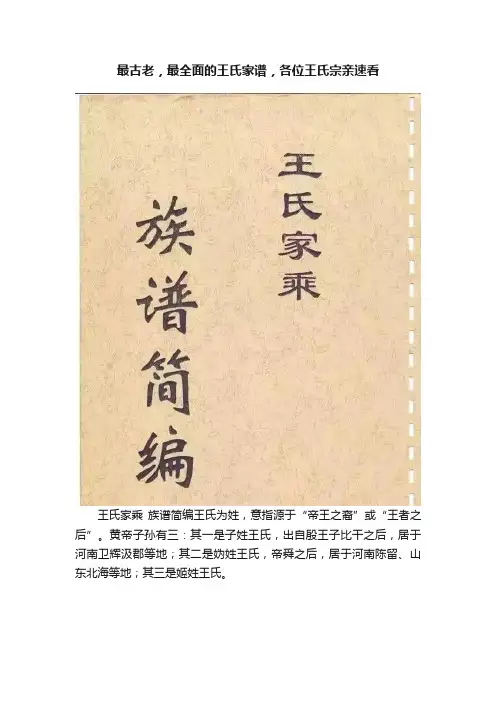 最古老，最全面的王氏家谱，各位王氏宗亲速看
王氏家乘
族谱简编
王氏家乘 族谱简编王氏为姓，意指源于“帝王之裔”或“王者之
后”。黄帝子孙有三：其一是子姓王氏，出自殷王子比干之后，居于
河南卫辉汲郡等地；其二是妫姓王氏，帝舜之后，居于河南陈留、山
东北海等地；其三是姬姓王氏。